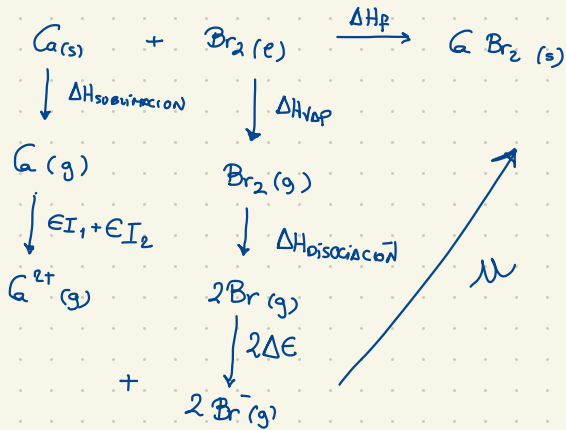 Ca(s) + Br₂(ℓ) ΔHf CaBr₂(s)
ΔHSUBLIMACION ΔHVAP
Ca(g) Br₂(g)
EI₁ + EI₂ ΔHDISOCIACION
Ca²⁺(g) 2Br(g) U
2ΔE
+ 2Br⁻(g)